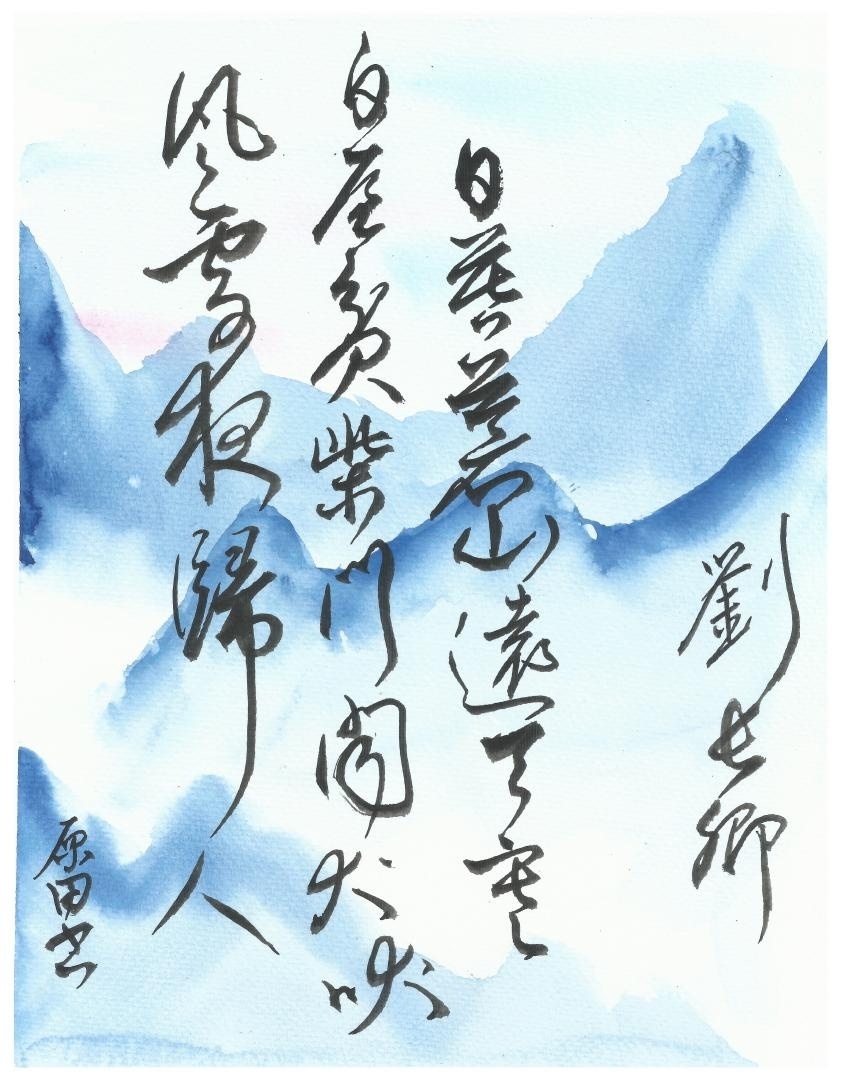 劉長卿
日暮蒼山遠天寒
白屋貧柴門聞犬吠
風雪夜歸人
原田书